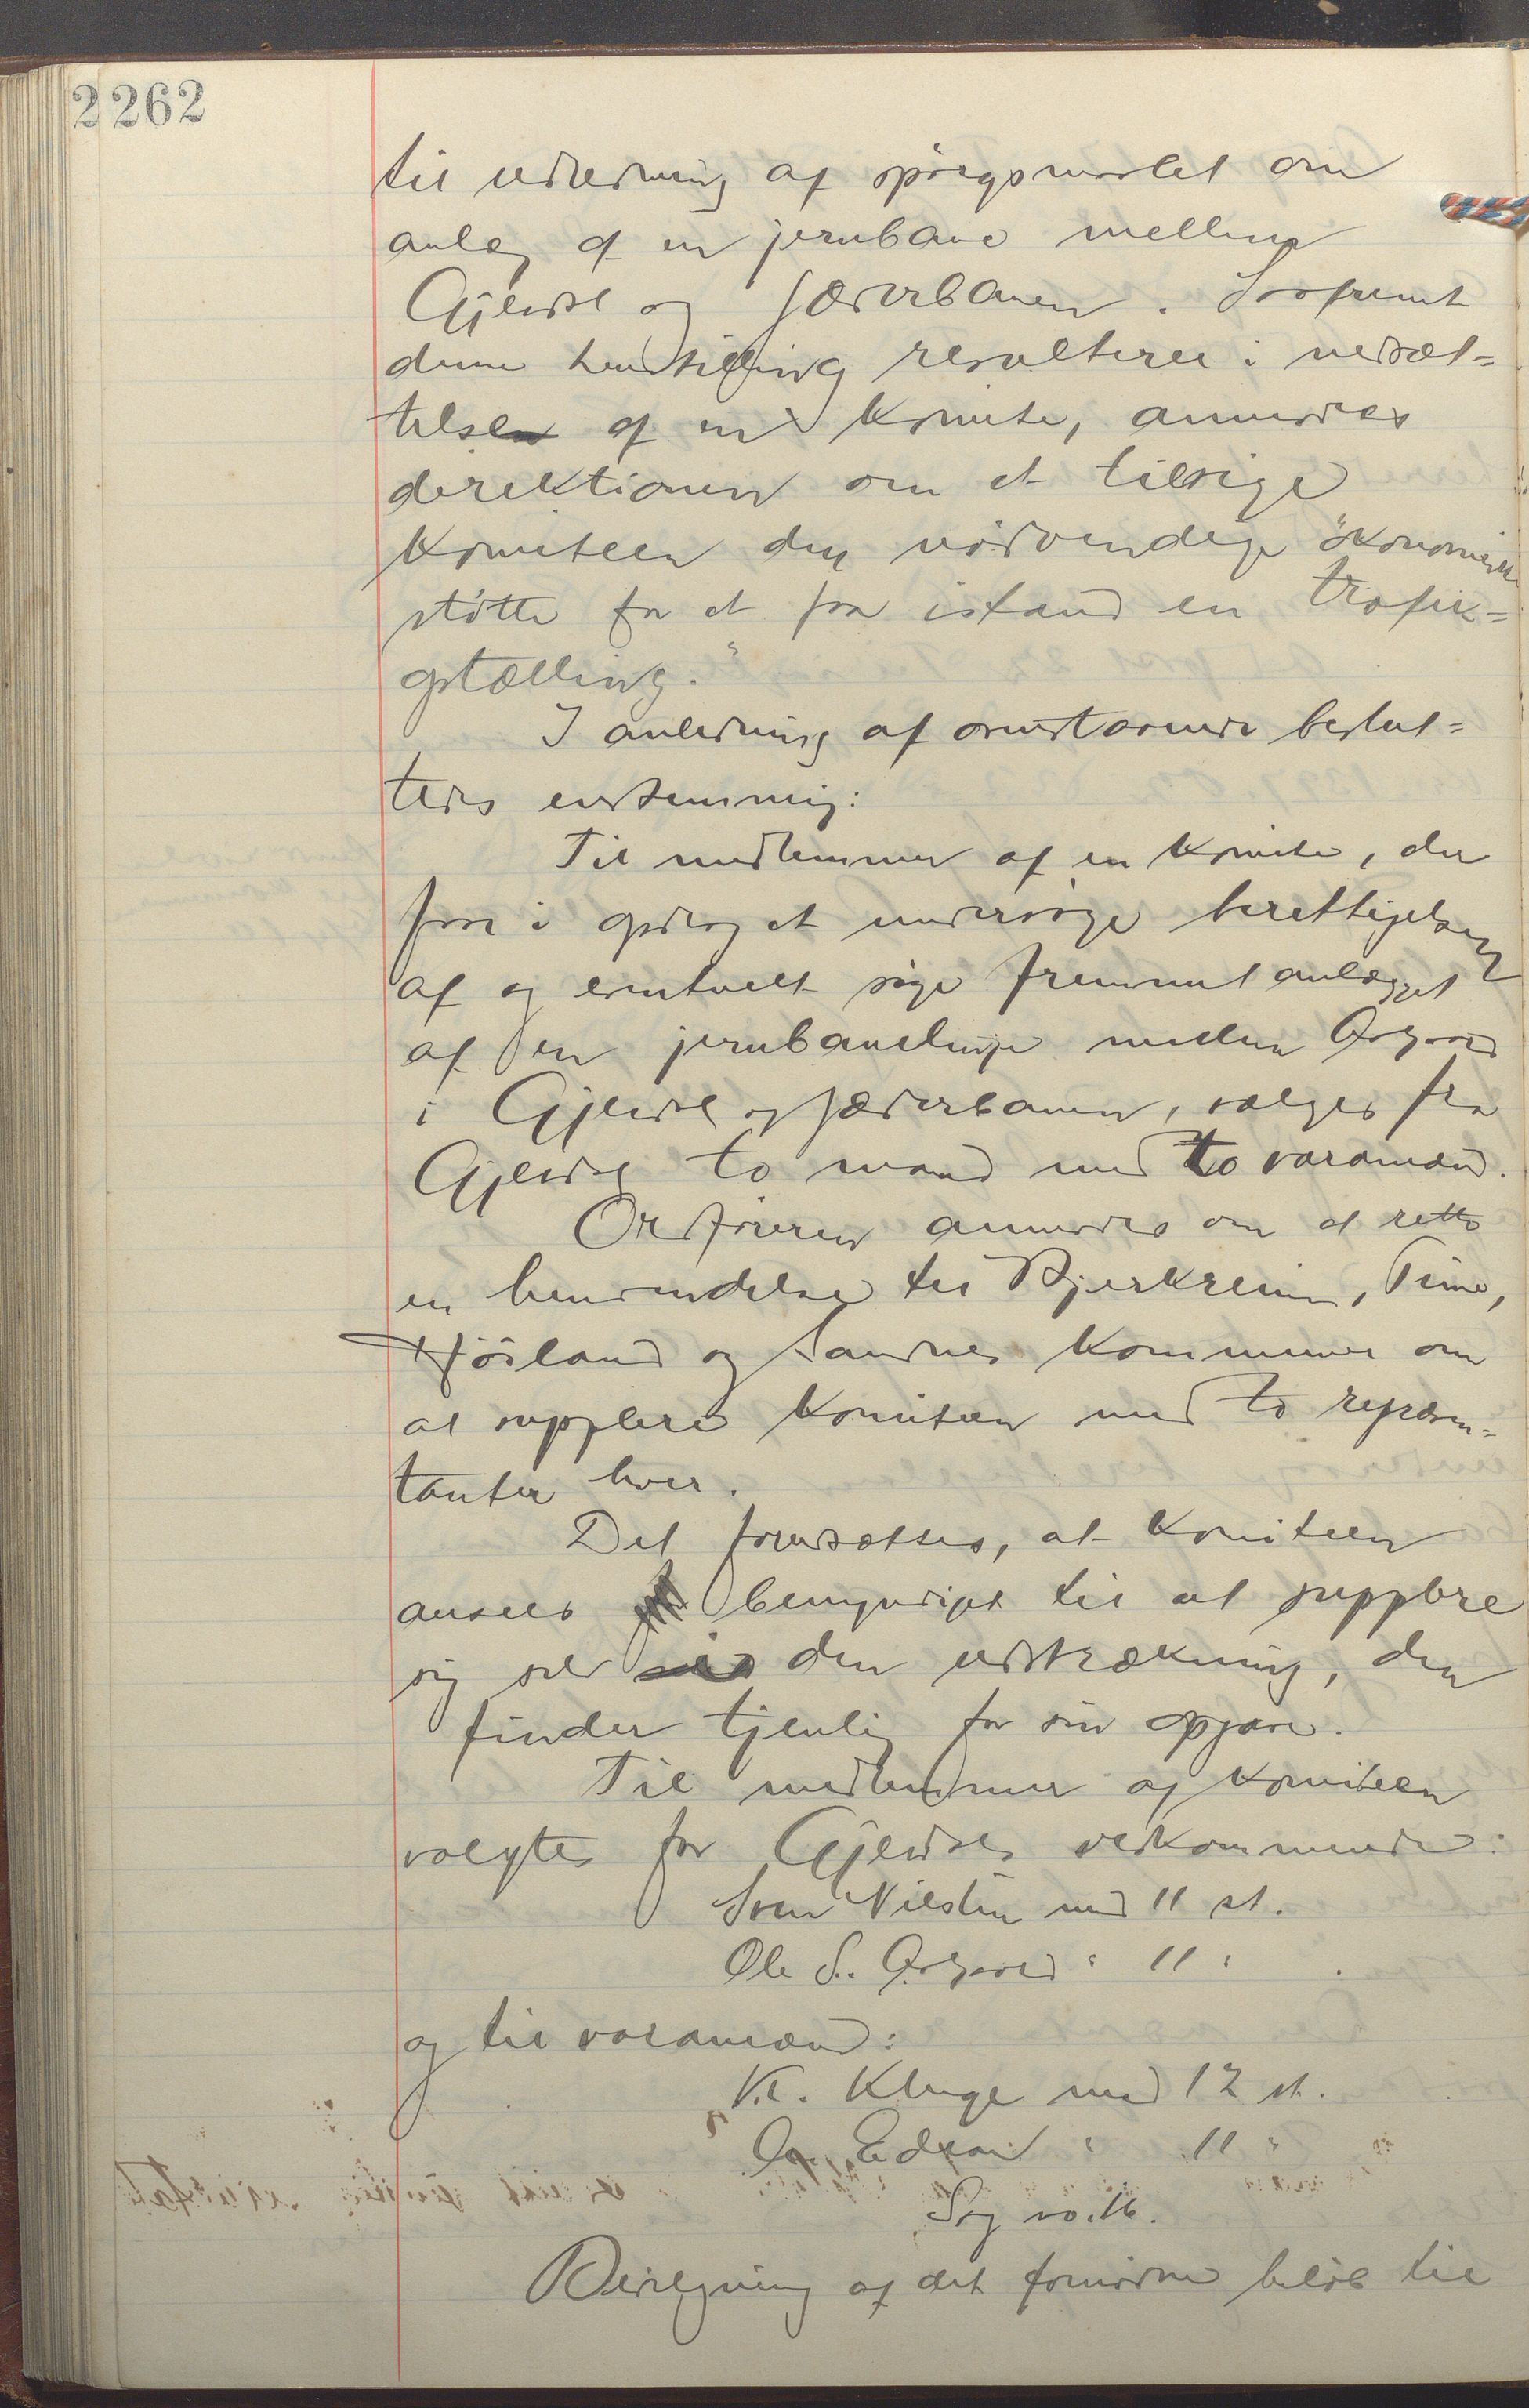 2262
til udredning af spørgsmaalet om
anlæg af en jernbane mellem
Gjesdal og Jæderbanen. Saafremt
denne henstilling resulterer i nedsæt=
telse af en komite, anmodes
direktionen om at tilsige
komiteen den nødvendige økonomiske
støtte for at faa istand en trafik=
optælling."
I anledning af ovenstaaende beslut=
tedes enstemmig:
Til medlemmer af en komite, der
faar i opdrag at undersøge berettigelsen
af og eventuelt søge fremmet anlægget
af en jernbanelinje mellem Aalgaard
i Gjesdal og Jæderbanen, vælges fra
Gjesdal to mænd med to varamænd.
Ordføreren anmodes om at rette
en henvendelse til Bjerkreim, Time,
Høiland og Sandnes kommuner om
at supplere komiteen med to repræsen=
tanter hver.
Det forudsættes, at komiteen
ansees bemyndiget til at supplere
sig selv i den udstrækning, den
finder tjenlig for sin opgave.
Til medlemmer af komiteen
valgtes for Gjesdals vedkommende:
Sven Nilsen med 11 st.
Ole S. Aalgaard " 11 "
og til varamænd:
Kr. Kluge med 12 st.
O. Edland " 11 "
Sag no. 16.
Beregning af det fornødne beløb til